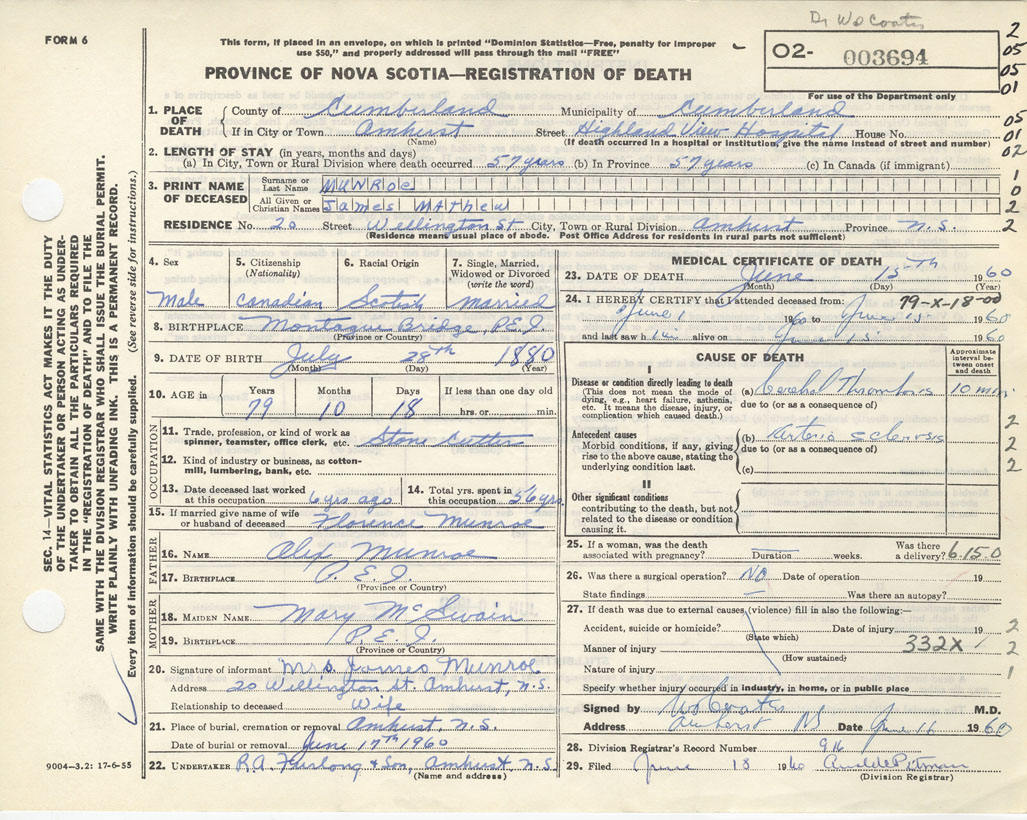 Dr Wo Coates
FORM 6
This form, if placed in an envelope, on which is printed "Dominion Statistics—Free, penalty for improper
use $50," and properly addressed will pass through the mail "FREE"
O2- 003694
For use of the Department only
2
05
05
01
PROVINCE OF NOVA SCOTIA—REGISTRATION OF DEATH
1. PLACE OF DEATH
County of Cumberland Municipality of Cumberland
If in City or Town Amherst Street Highland View Hospital House No.
(Name) (If death occurred in a hospital or institution, give the name instead of street and number)
05
01
02
2. LENGTH OF STAY (in years, months and days)
(a) In City, Town or Rural Division where death occurred 57 years (b) In Province 57 years (c) In Canada (if immigrant)
3. PRINT NAME OF DECEASED
Surname or Last Name MUNROE
All Given or Christian Names JAMES MATHEW
1
0
2
2
RESIDENCE No. 20 Street Wellington St City, Town or Rural Division Amherst Province N.S.
(Residence means usual place of abode. Post Office Address for residents in rural parts not sufficient)
4. Sex
Male
5. Citizenship
(Nationality)
Canadian
6. Racial Origin
Scotish
7. Single, Married,
Widowed or Divorced
(write the word)
married
8. BIRTHPLACE Montague Bridge, P.E.I.
(Province or Country)
9. DATE OF BIRTH July 28th 1880
(Month) (Day) (Year)
10. AGE in
Years Months Days If less than one day old
79 10 18 hrs. or min.
OCCUPATION
11. Trade, profession, or kind of work as
spinner, teamster, office clerk, etc. Stone Cutter
12. Kind of industry or business, as cotton-
mill, lumbering, bank, etc.
13. Date deceased last worked
at this occupation 6 yrs ago
14. Total yrs. spent in
this occupation 56 yrs
15. If married give name of wife
or husband of deceased Florence Munroe
FATHER
16. NAME Alex Munroe
17. BIRTHPLACE P.E.I.
(Province or Country)
MOTHER
18. MAIDEN NAME Mary McSwain
19. BIRTHPLACE P.E.I.
(Province or Country)
20. Signature of informant Mrs. James Munroe
Address 20 Wellington St. Amherst, N.S.
Relationship to deceased Wife
21. Place of burial, cremation or removal Amherst, N.S.
Date of burial or removal June 17th 1960
22. UNDERTAKER R.A. Furlong & Son, Amherst N.S.
(Name and address)
MEDICAL CERTIFICATE OF DEATH
23. DATE OF DEATH June 15th 1960
(Month) (Day) (Year)
24. I HEREBY CERTIFY that I attended deceased from: 79-X-18-00
June 1 1960 to June 15 1960
and last saw him alive on June 15 1960
CAUSE OF DEATH
Approximate
interval be-
tween onset
and death
I
Disease or condition directly leading to death
(This does not mean the mode of
dying, e.g., heart failure, asthenia,
etc. It means the disease, injury, or
complication which caused death.)
(a) Cerebral Thrombosis 10 min.
due to (or as a consequence of)
Antecedent causes
Morbid conditions, if any, giving
rise to the above cause, stating the
underlying condition last.
(b) Arterio sclerosis
due to (or as a consequence of)
(c)
2
2
2
II
Other significant conditions
contributing to the death, but not
related to the disease or condition
causing it.
25. If a woman, was the death
associated with pregnancy? Duration weeks. Was there
a delivery? 6.15.0
26. Was there a surgical operation? NO Date of operation 19
State findings — Was there an autopsy?
27. If death was due to external causes (violence) fill in also the following:—
Accident, suicide or homicide? Date of injury 19 2
(State which)
Manner of injury 332X 2
(How sustained)
Nature of injury 1
Specify whether injury occurred in industry, in home, or in public place
Signed by Wo Coates M.D.
Address Amherst NS Date June 16 1960
28. Division Registrar's Record Number 916
29. Filed June 18 1960 Pitman
(Division Registrar)
SEC. 14—VITAL STATISTICS ACT MAKES IT THE DUTY
OF THE UNDERTAKER OR PERSON ACTING AS UNDER-
TAKER TO OBTAIN ALL THE PARTICULARS REQUIRED
IN THE "REGISTRATION OF DEATH" AND TO FILE THE
SAME WITH THE DIVISION REGISTRAR WHO SHALL ISSUE THE BURIAL PERMIT.
WRITE PLAINLY WITH UNFADING INK. THIS IS A PERMANENT RECORD.
Every item of information should be carefully supplied. (See reverse side for instructions.)
9004—3.2: 17-6-55